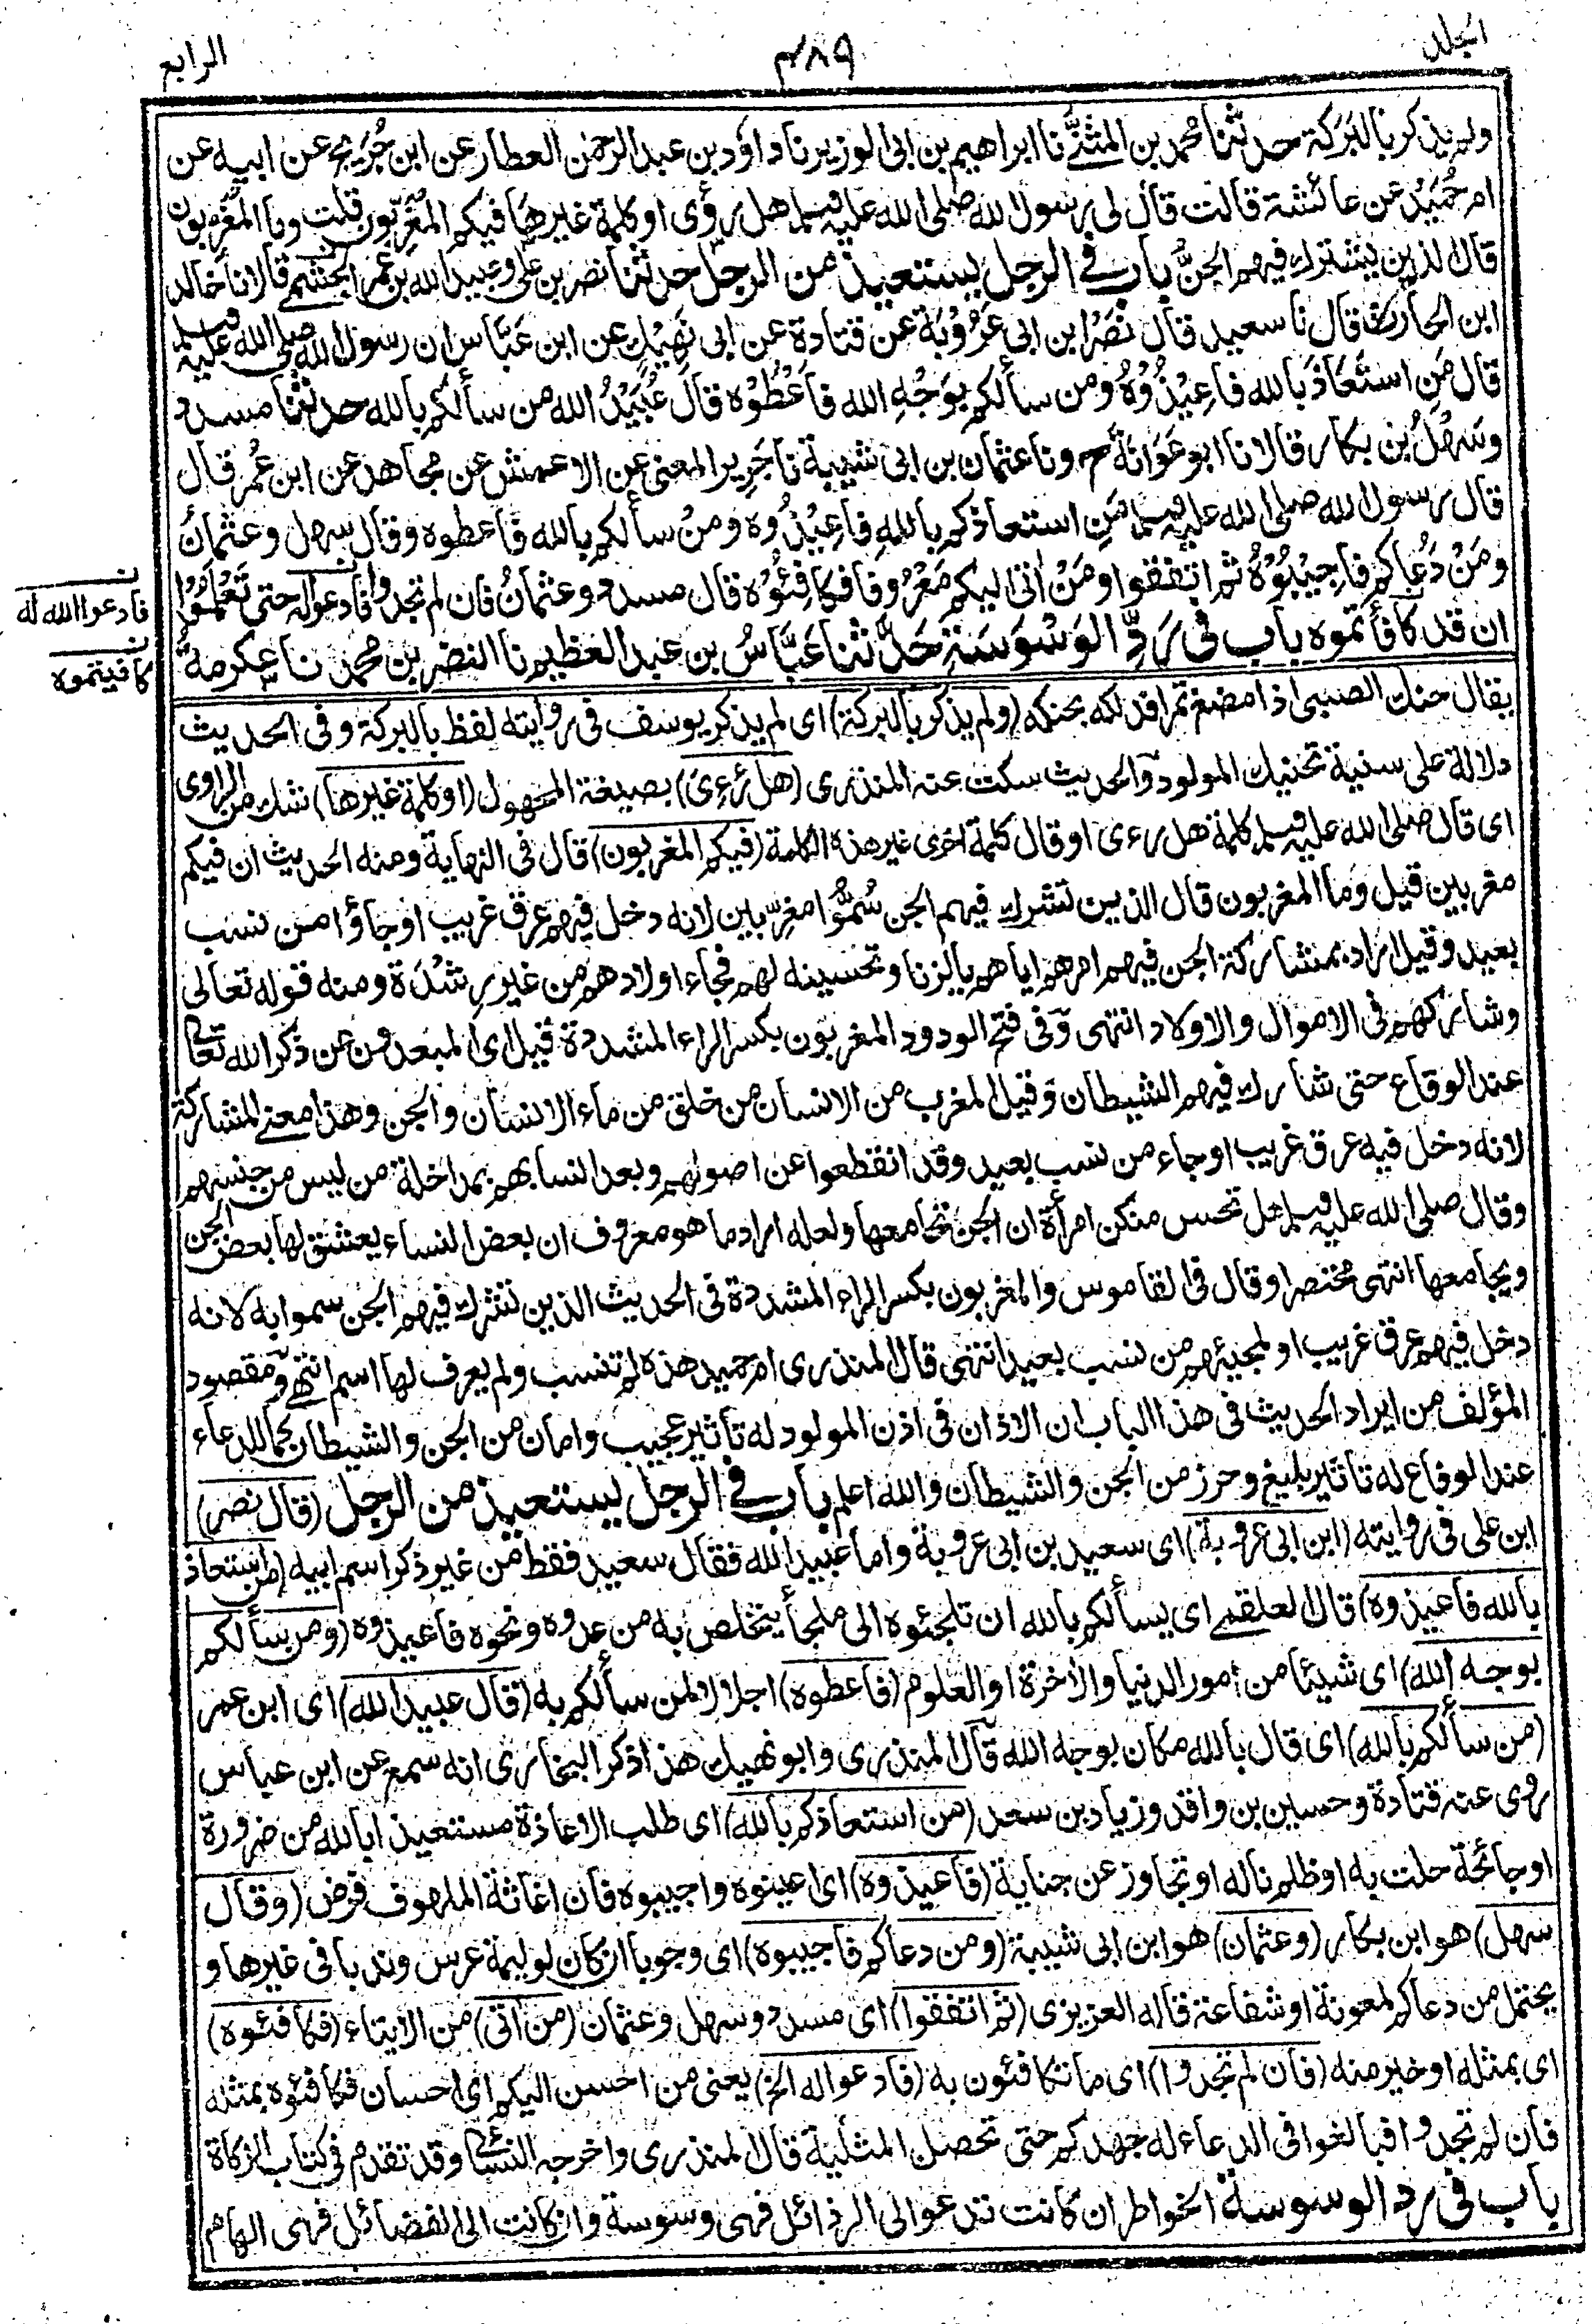 الجلد
٤٨٩
الرابع
ولم يذكر بالبركة حدثنا محمد بن المثنى نا ابراهيم بن ابى الوزير نا داؤد بن عبد الرحمن العطار عن ابن جُرَيج عن ابيه عن
ام حُمَيْدٍ عن عائشة قالت قال لى رسول الله صلى الله عليه وسلم هل رؤى او كلمة غيرها فيكم المُغَرِّبون قلت وما المُغَرِّبون
قال الذين يشترك فيهم الجنُّ باب فى الرجل يستعيذ من الرجل حدثنا نصر بن على وعبيد الله بن عمر الجشمى قالا نا خالد
ابن الحارث قال نا سعيد قال نَصْرُ ابن ابى عَرُوْبَةَ عن قتادة عن ابى نَهِيْكٍ عن ابن عَبَّاس ان رسول الله صلى الله عليه وسلم
قال مَنِ استَعَاذَ بالله فاَعِيْذُوْهُ ومن سألكم بوَجْهِ الله فاَعْطُوْه قال عُبَيْدُ الله من سألكم بالله حدثنا مسدد
وسَهْلُ بن بكار قالا نا ابو عَوَانَةَ ح ونا عثمان بن ابى شيبة نا جَرِير المعنى عن الاعمش عن مجاهد عن ابن عُمر قال
قال رسول الله صلى الله عليه وسلم مَنِ استعاذكم باللهِ فاَعِيْذُوه ومنْ سألكم بالله فاَعطوه وقال سهل وعثمانُ
ومَنْ دَعَاكم فاَجِيْبُوْهُ ثم اتفقوا ومَنْ اتى اليكم مَعْرُوفا فكافِئُوْه قال مسدد وعثمانُ فان لم تجدوا فادعوا له حتى تَعْلَمُوْا
ان قد كافأتموه باب فى رَدِّ الوَسْوَسَةِ حَدَّثنا عَبَّاسُ بن عبد العظيم نا النضر بن محمد نا عكرمة
ن
فادعوا الله له
ن
كافيتموه
يقال حنك الصبى اذا مضغ تمرا فدلكه بحنكه (ولم يذكر بالبركة) اى لم يذكر يوسف فى روايته لفظ بالبركة وفى الحديث
دلالة على سنية تحنيك المولود والحديث سكت عنه المنذرى (هل رُءِىَ) بصيغة المجهول (او كلمة غيرها) شك من الراوى
اى قال صلى الله عليه وسلم كلمة هل رءى او قال كلمة اخرى غير هذه الكلمة (فيكم المغربون) قال فى النهاية ومنه الحديث ان فيكم
مغربين قيل وما المغربون قال الذين تشرك فيهم الجن سُمُّوا مغرِّبين لانه دخل فيهم عرق غريب او جاؤا من نسب
بعيد وقيل اراد بمشاركة الجن فيهم امرهم اياهم بالزنا وتحسينه لهم فجاء اولادهم من غير رِشْدَة ومنه قوله تعالى
وشاركهم فى الاموال والاولاد انتهى وفى فتح الودود المغربون بكسر الراء المشددة قيل اى المبعدون عن ذكر الله تعالى
عند الوقاع حتى شارك فيهم الشيطان وقيل المغرب من الانسان من خلق من ماء الانسان والجن وهذا معنى المشاركة
لانه دخل فيه عرق غريب او جاء من نسب بعيد وقد انقطعوا عن اصولهم وبعد انسابهم بمداخلة من ليس من جنسهم
وقال صلى الله عليه وسلم هل تحس منكن امرأة ان الجن تجامعها ولعله اراد ما هو معروف ان بعض النساء يعشق لها بعض الجن
ويجامعها انتهى مختصرا وقال فى القاموس والمغربون بكسر الراء المشددة فى الحديث الذين تشرك فيهم الجن سموا به لانه
دخل فيهم عرق غريب او لمجيئهم من نسب بعيد انتهى قال المنذرى ام حميد هذه لم تنسب ولم يعرف لها اسم انتهى ومقصود
المؤلف من ايراد الحديث فى هذا الباب ان الاذان فى اذن المولود له تاثير عجيب وامان من الجن والشيطان كما للدعاء
عند الوقاع له تاثير بليغ وحرز من الجن والشيطان والله اعلم باب فى الرجل يستعيذ من الرجل (قال نصر)
ابن على فى روايته (ابن ابى عروبة) اى سعيد بن ابى عروبة واما عبيد الله فقال سعيد فقط من غير ذكر اسم ابيه (من استعاذ
بالله فاعيذوه) قال العلقمى اى يسألكم بالله ان تلجئوه الى ملجأ يتخلص به من عدوه ونحوه فاعيذوه (ومن سألكم
بوجه الله) اى شيئا من امور الدنيا والاخرة او العلوم (فاعطوه) اجلالا لمن سألكم به (قال عبيد الله) اى ابن عمر
(من سألكم بالله) اى قال بالله مكان بوجه الله قال المنذرى وابو نهيك هذا ذكر البخارى انه سمع عن ابن عباس
روى عنه قتادة وحسين بن واقد وزياد بن سعد (من استعاذكم بالله) اى طلب الاعاذة مستعيذا بالله من ضرورة
او جائحة حلت به او ظلم ناله او تجاوز عن جناية (فاعيذوه) اى اعينوه واجيبوه فان اغاثة الملهوف فرض (وقال
سهل) هو ابن بكار (وعثمان) هو ابن ابى شيبة (ومن دعاكم فاجيبوه) اى وجوبا ان كان لوليمة عرس وندبا فى غيرها و
يحتمل من دعاكم لمعونة او شفاعة قاله العزيزى (ثم اتفقوا) اى مسدد وسهل وعثمان (من اتى) من الايتاء (فكافئوه)
اى بمثله او خير منه (فان لم تجدوا) اى ما تكافئون به (فادعوا له الخ) يعنى من احسن اليكم اى احسان فكافئوه بمثله
فان لم تجدوا فبالغوا فى الدعاء له جهدكم حتى تحصل المثلية قال المنذرى واخرجه النسائى وقد تقدم فى كتاب الزكاة
باب فى رد الوسوسة الخواطر ان كانت تدعوا الى الرذائل فهى وسوسة وان كانت الى الفضائل فهى الهام